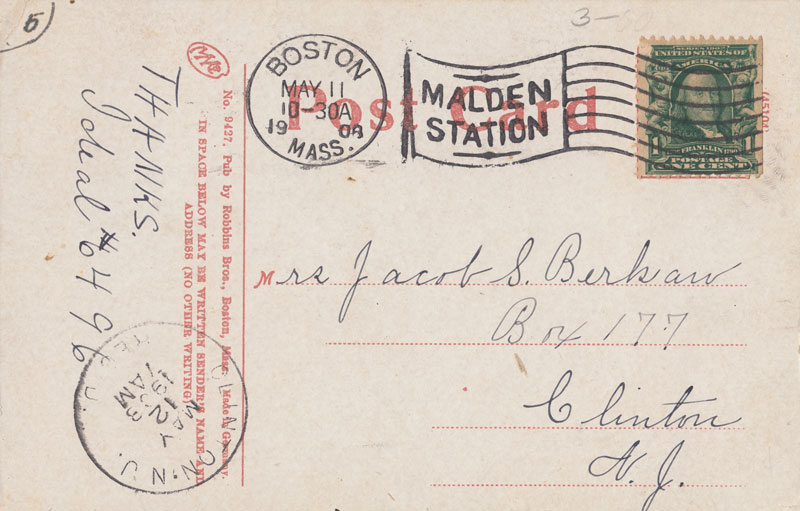 5
3-
BOSTON
MAY 11
10-30A
1908
MASS.
MALDEN
STATION
Post Card
SERIES 1902
UNITED STATES OF
AMERICA
FRANKLIN
POSTAGE
1 ONE CENT 1
Mrs Jacob S. Berkaw
Box 177
Clinton
N.J.
THANKS.
Ideal #6496
No. 9427. Pub by Robbins Bros., Boston, Mass. (Made in Germany.
IN SPACE BELOW MAY BE WRITTEN SENDER'S NAME AND
ADDRESS (NO OTHER WRITING)
CLINTON, N.J.
MAY
12
7AM
REC'D.